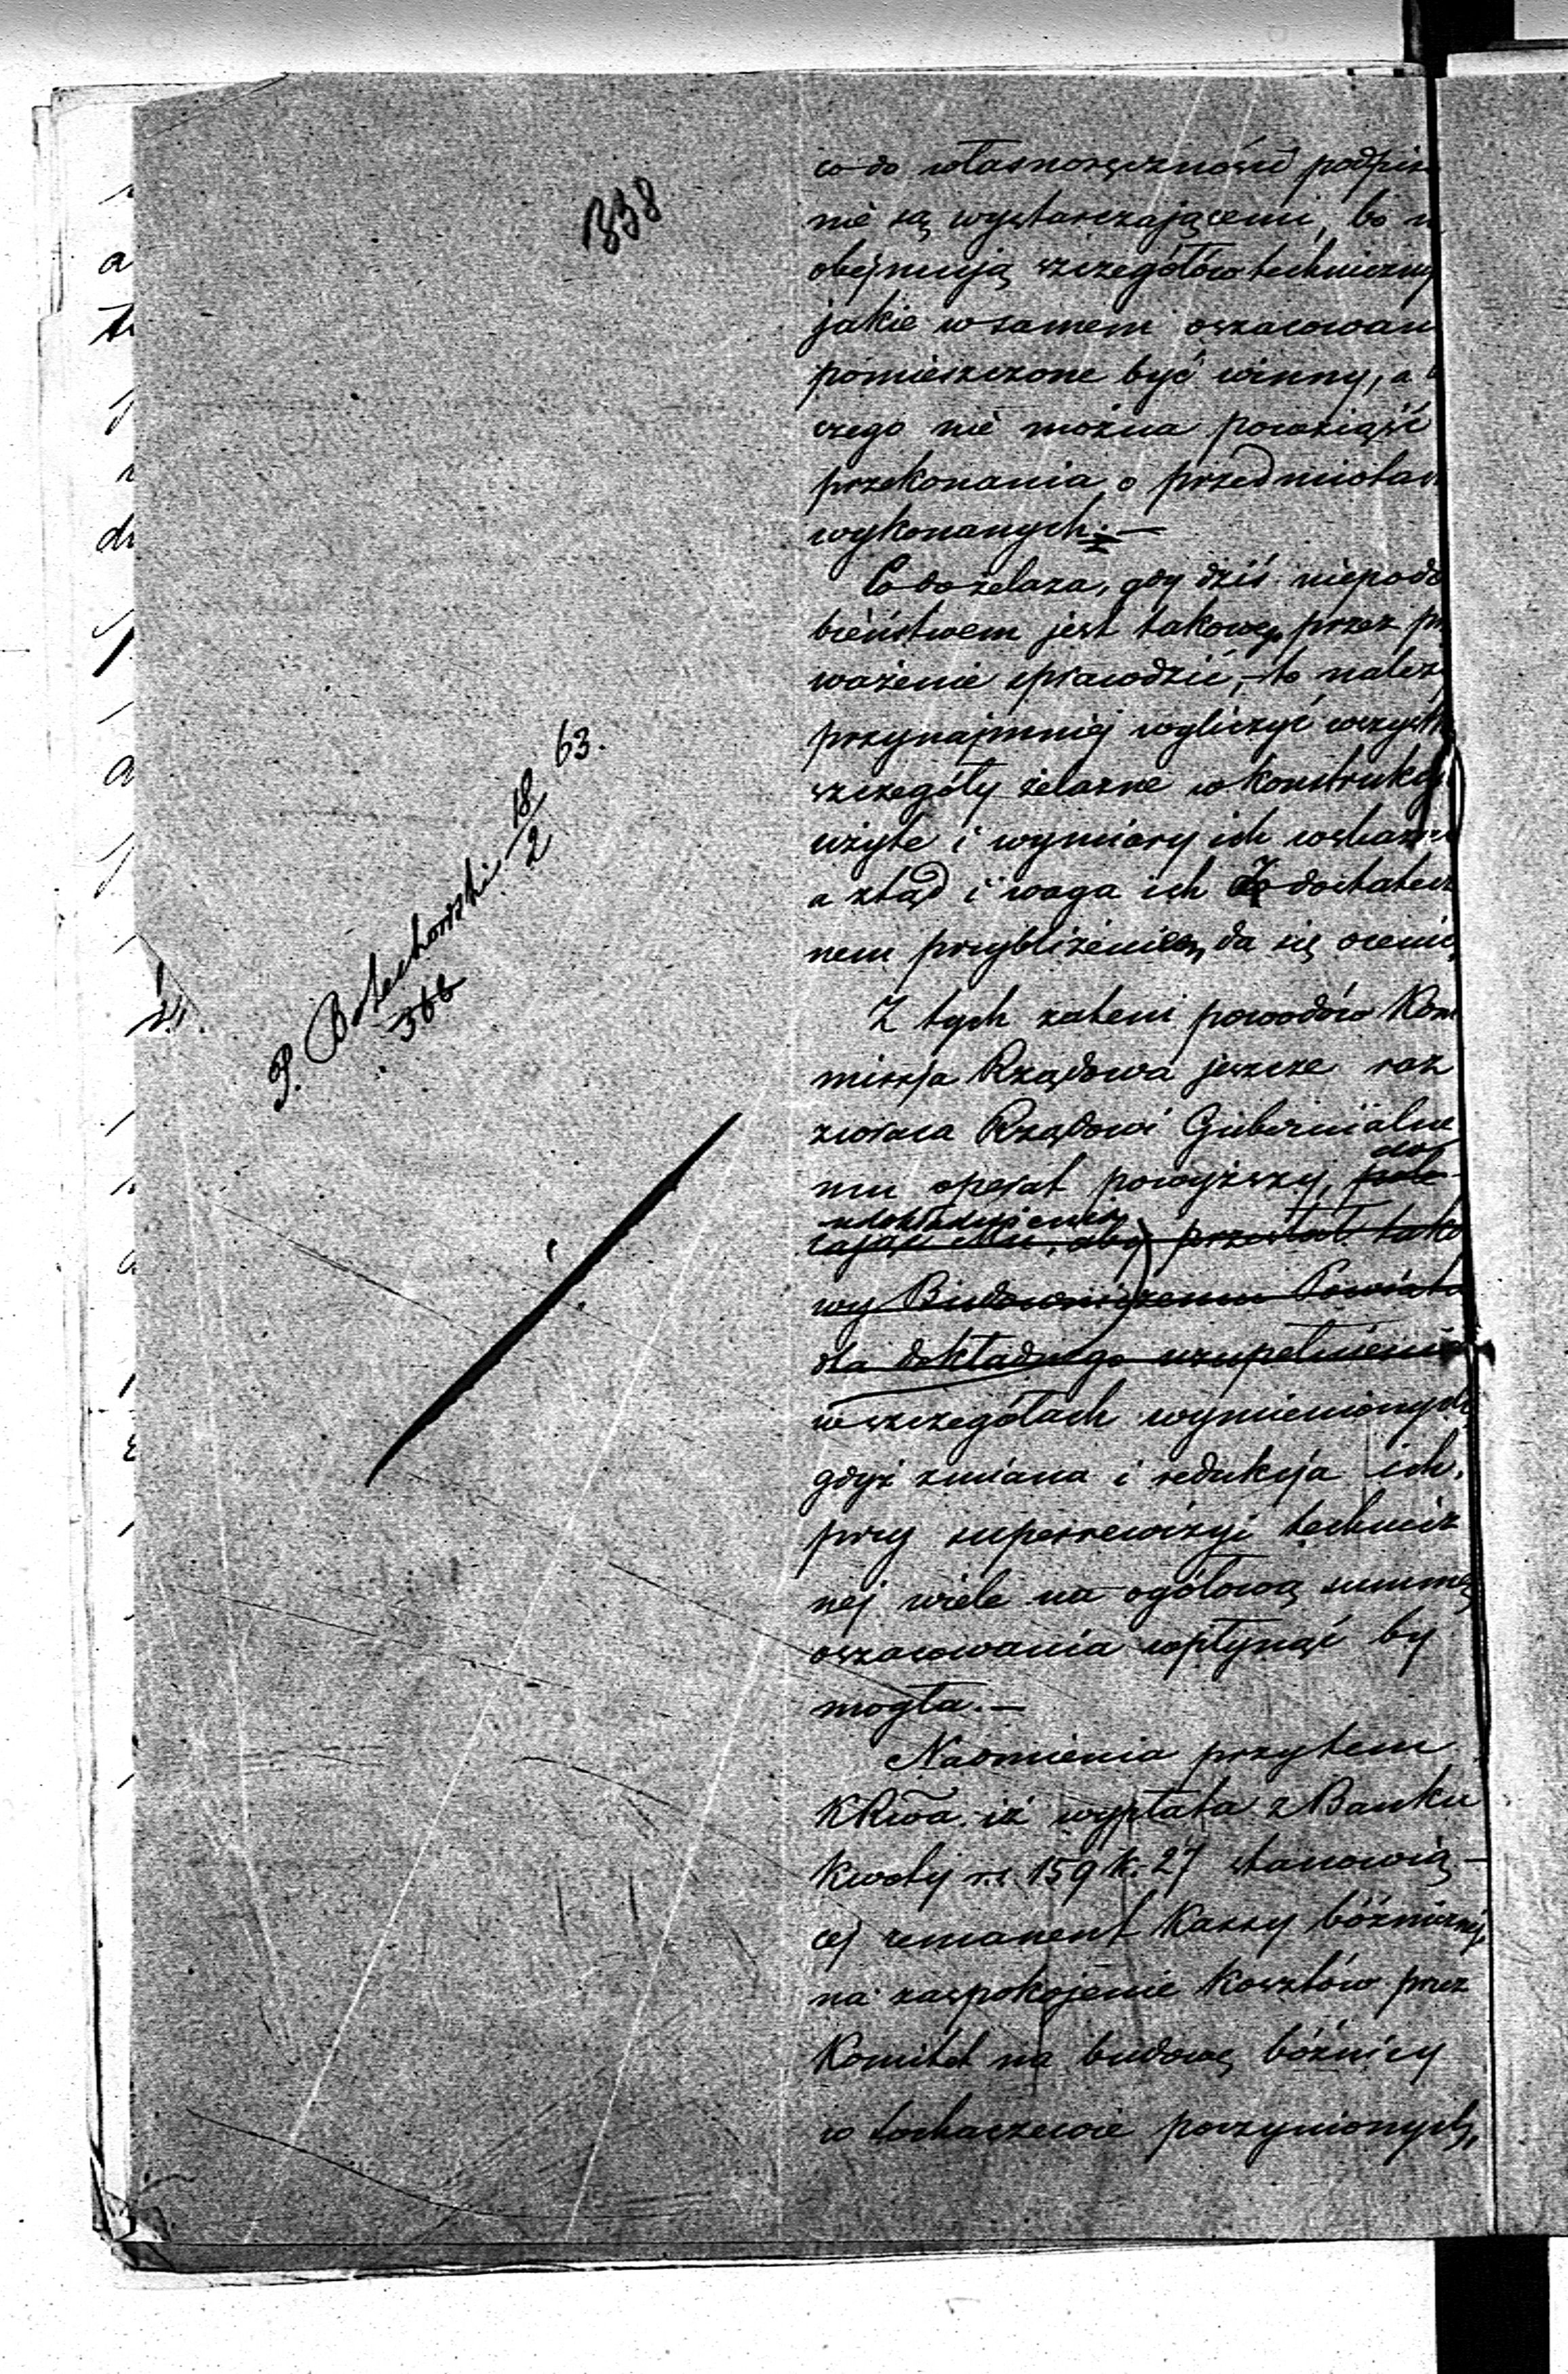 338
co do własnoręczności podpis
nie są wystarczającemi, bo n
obejmują szczegółów techniczny
jakie w samem oszacowan
pomieszczone być winny, a
czego nie można powziąść
przekonania o przedmiotac
wykonanych. —
Co do żelaza, gdy dziś niepodo
bieństwem jest takowego przez prze
ważenie sprawdzić, – to należy
przynajmniej wyliczyć wszystk
szczegóły żelazne w konstrukcyi
użyte i wymiary ich wskazać
a ztąd i waga ich z dostatecz
nem przybliżeniem da się ocenić
Z tych zatem powodów Kom
missja Rządowa jeszcze raz
zwraca Rządowi Gubernialne
mu operat powyższy, pole-
do
uzupełnienia
cając Mu, aby przesłał tako
wy Budowniczemu Powiatu
dla dokładnego uzupełnienia
w szczegółach wymienionych,
gdyż zmiana i redukcja ich,
przy superrewizyi technicz
nej wiele na ogólową summę
oszacowania wpłynąć by
mogła. —
Nadmienia przytem
KRwa iż wypłata z Banku
kwoty rs. 159 k. 27 stanowią-
cej remanent Kassy bóżniczej,
na zaspokojenie kosztów przez
Komitet na budowę bóżnicy
w Sochaczewie poczynionych,
P. 18/2 63.
366